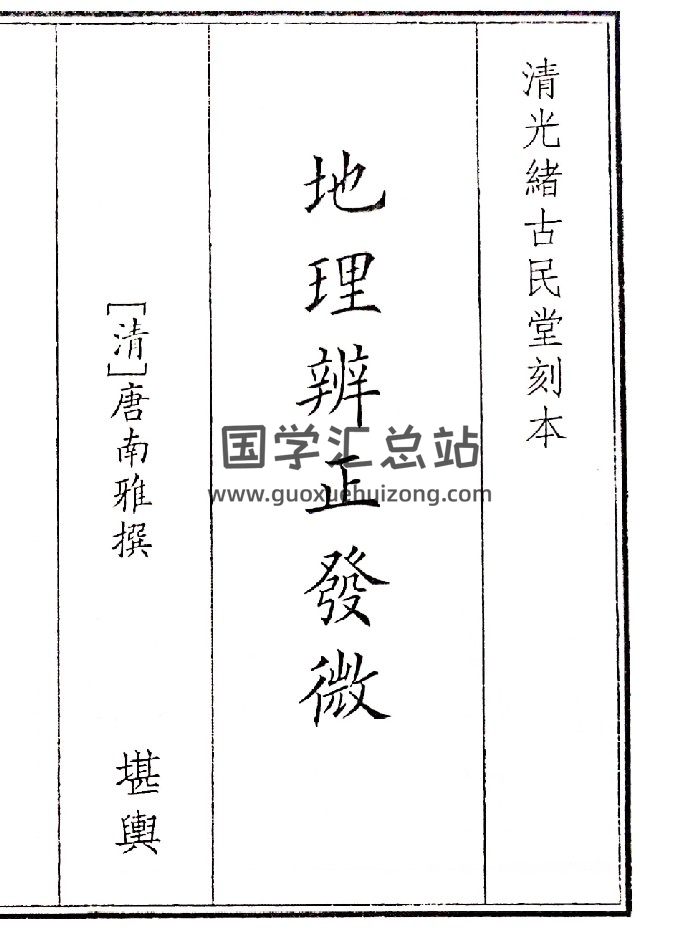 清光緒古民堂刻本
地理辨正發微
[清]唐南雅撰
堪輿
国学汇总站
www.guoxuehuizong.com